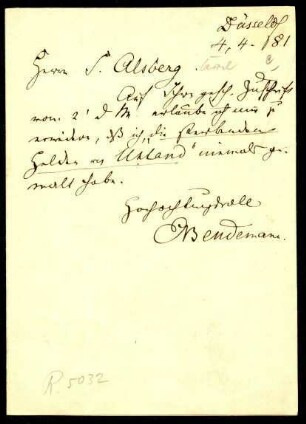 Düsseld
4, 4 - /81
Herrn S. Alsberg
Auf Ihre gesch. Zuschrift
von 2' d M. erlaube ich mir zu
erwidern, daß ich die sterbenden
Helden v. Uhland niemals ge-
malt habe.
Hochachtungsvoll
Bendemann.
R 5032